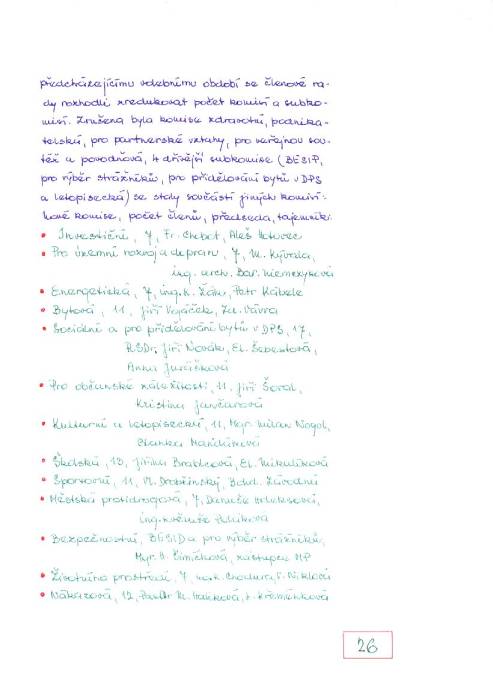 předcházejícímu volebnímu období se členové ra-
dy rozhodli zredukovat počet komisí a subko-
misí. Zrušena byla komise zdravotní, podnika-
telská, pro partnerské vztahy, pro veřejnou sou-
těž a povodňová, 4 dřívější subkomise (BESIP,
pro výběr strážníků, pro přidělování bytů v DPS
a letopisecká) se staly součástí jiných komisí:
Nové komise, počet členů, předseda, tajemník:
• Investiční, 7, Fr. Chobot, Aleš
• Pro územní rozvoj a dopravu, 7, M. Kývala,
ing. arch. Bar.
• Energetická, 7, ing. K. Žák, Petr Kábele
• Bytová, 11, Jiří Vojáček, Zd. Vávra
• Sociální a pro přidělování bytů v DPS, 17,
RSDr. Jiří Novák, El. Šebestová,
Anna Juráčková
• Pro občanské záležitosti, 11, Jiří
Kristina Jančarová
• Kulturní a letopisecká, 11, Mgr. Milan Nogol,
Blanka
• Školská, 13, Jiřina Brablcová, El. Mikulíková
• Sportovní, 11, Vl. Bohd. Závodní
• Městská protidrogová, 7, Danuše
ing. Květuše
• Bezpečnostní, BESID a pro výběr strážníků,
Mgr. H. zástupce MP
• Životního prostředí, 7, Chodura, Niklová
• Nákazová, 12, M. Hanková,
26